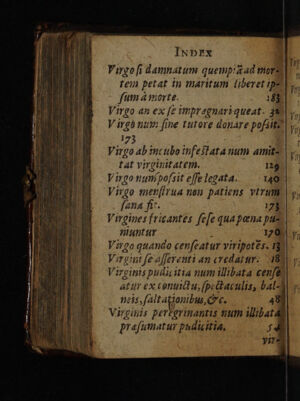 INDEX
Virgo si damnatum quempiã ad mor-
tem petat in maritum liberet ip-
sum à morte. 183
Virgo an ex se impregnari queat. 32
Virgo num sine tutore donare possit.
173
Virgo ab incubo infestata num amit-
tat virginitatem. 129
Virgo num possit esse legata. 140
Virgo menstrua non patiens vtrum
sana sit. 173
Virgines fricantes sese qua pœna pu-
niuntur 170
Virgo quando censeatur viripotēs. 13
Virgini se asserenti an credatur. 18
Virginis pudicitia num illibata cense
atur ex conuictu, spectaculis, bal-
neis, saltationibus, &c. 48
Virginis peregrinantis num illibata
præsumatur pudicitia. 54
vir-